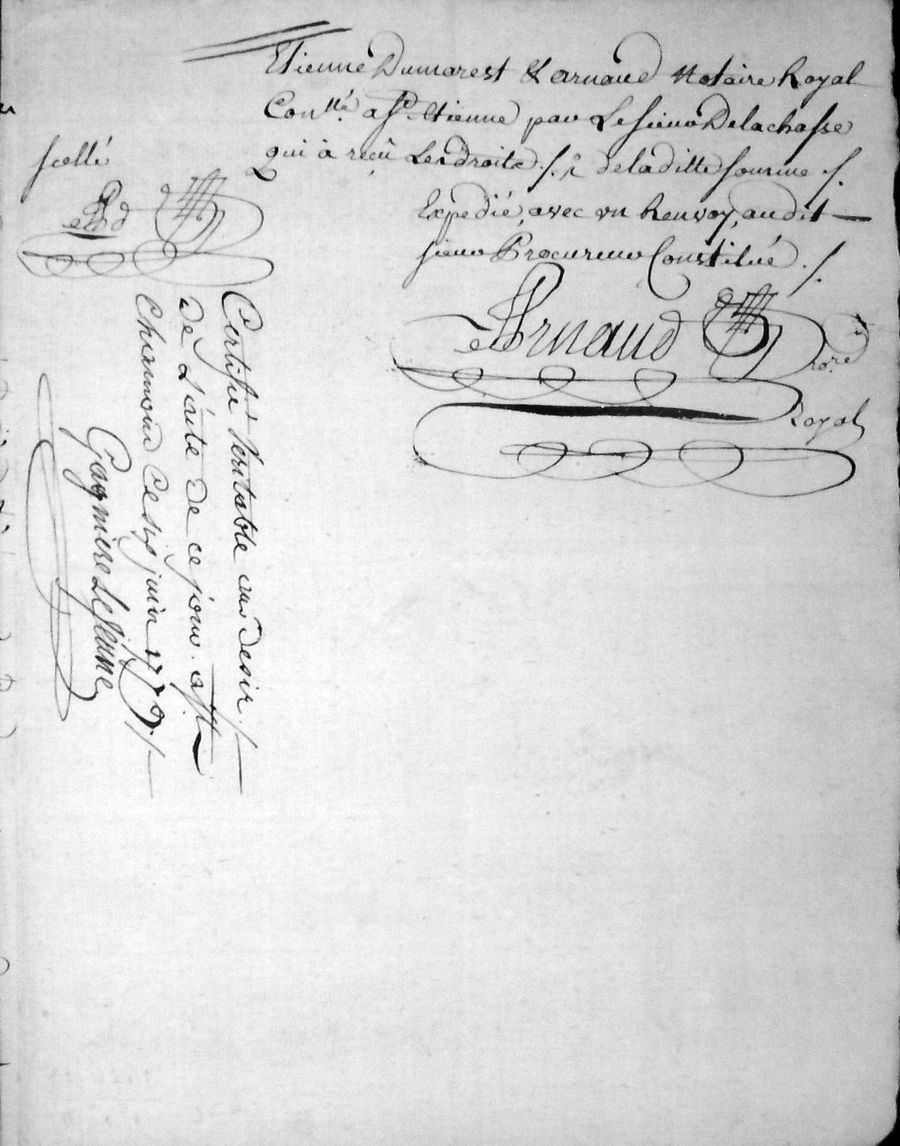 Etienne Dumarest & arnaud Notaire Royal
Con.llé a St. Etienne par Le sieur Delachasse
qui à reçu Les droits ./. 2 de laditte somme ./.
Expedié avec un Renvoy, audit
sieur Procureur Constitué ./.
Arnaud no.re
Royal
scellé
Certifié Veritable au desir ./.
de L'acte de ce jour. a st
Chiamond Ce juin 1779 ./.
Gagniere Le jeune